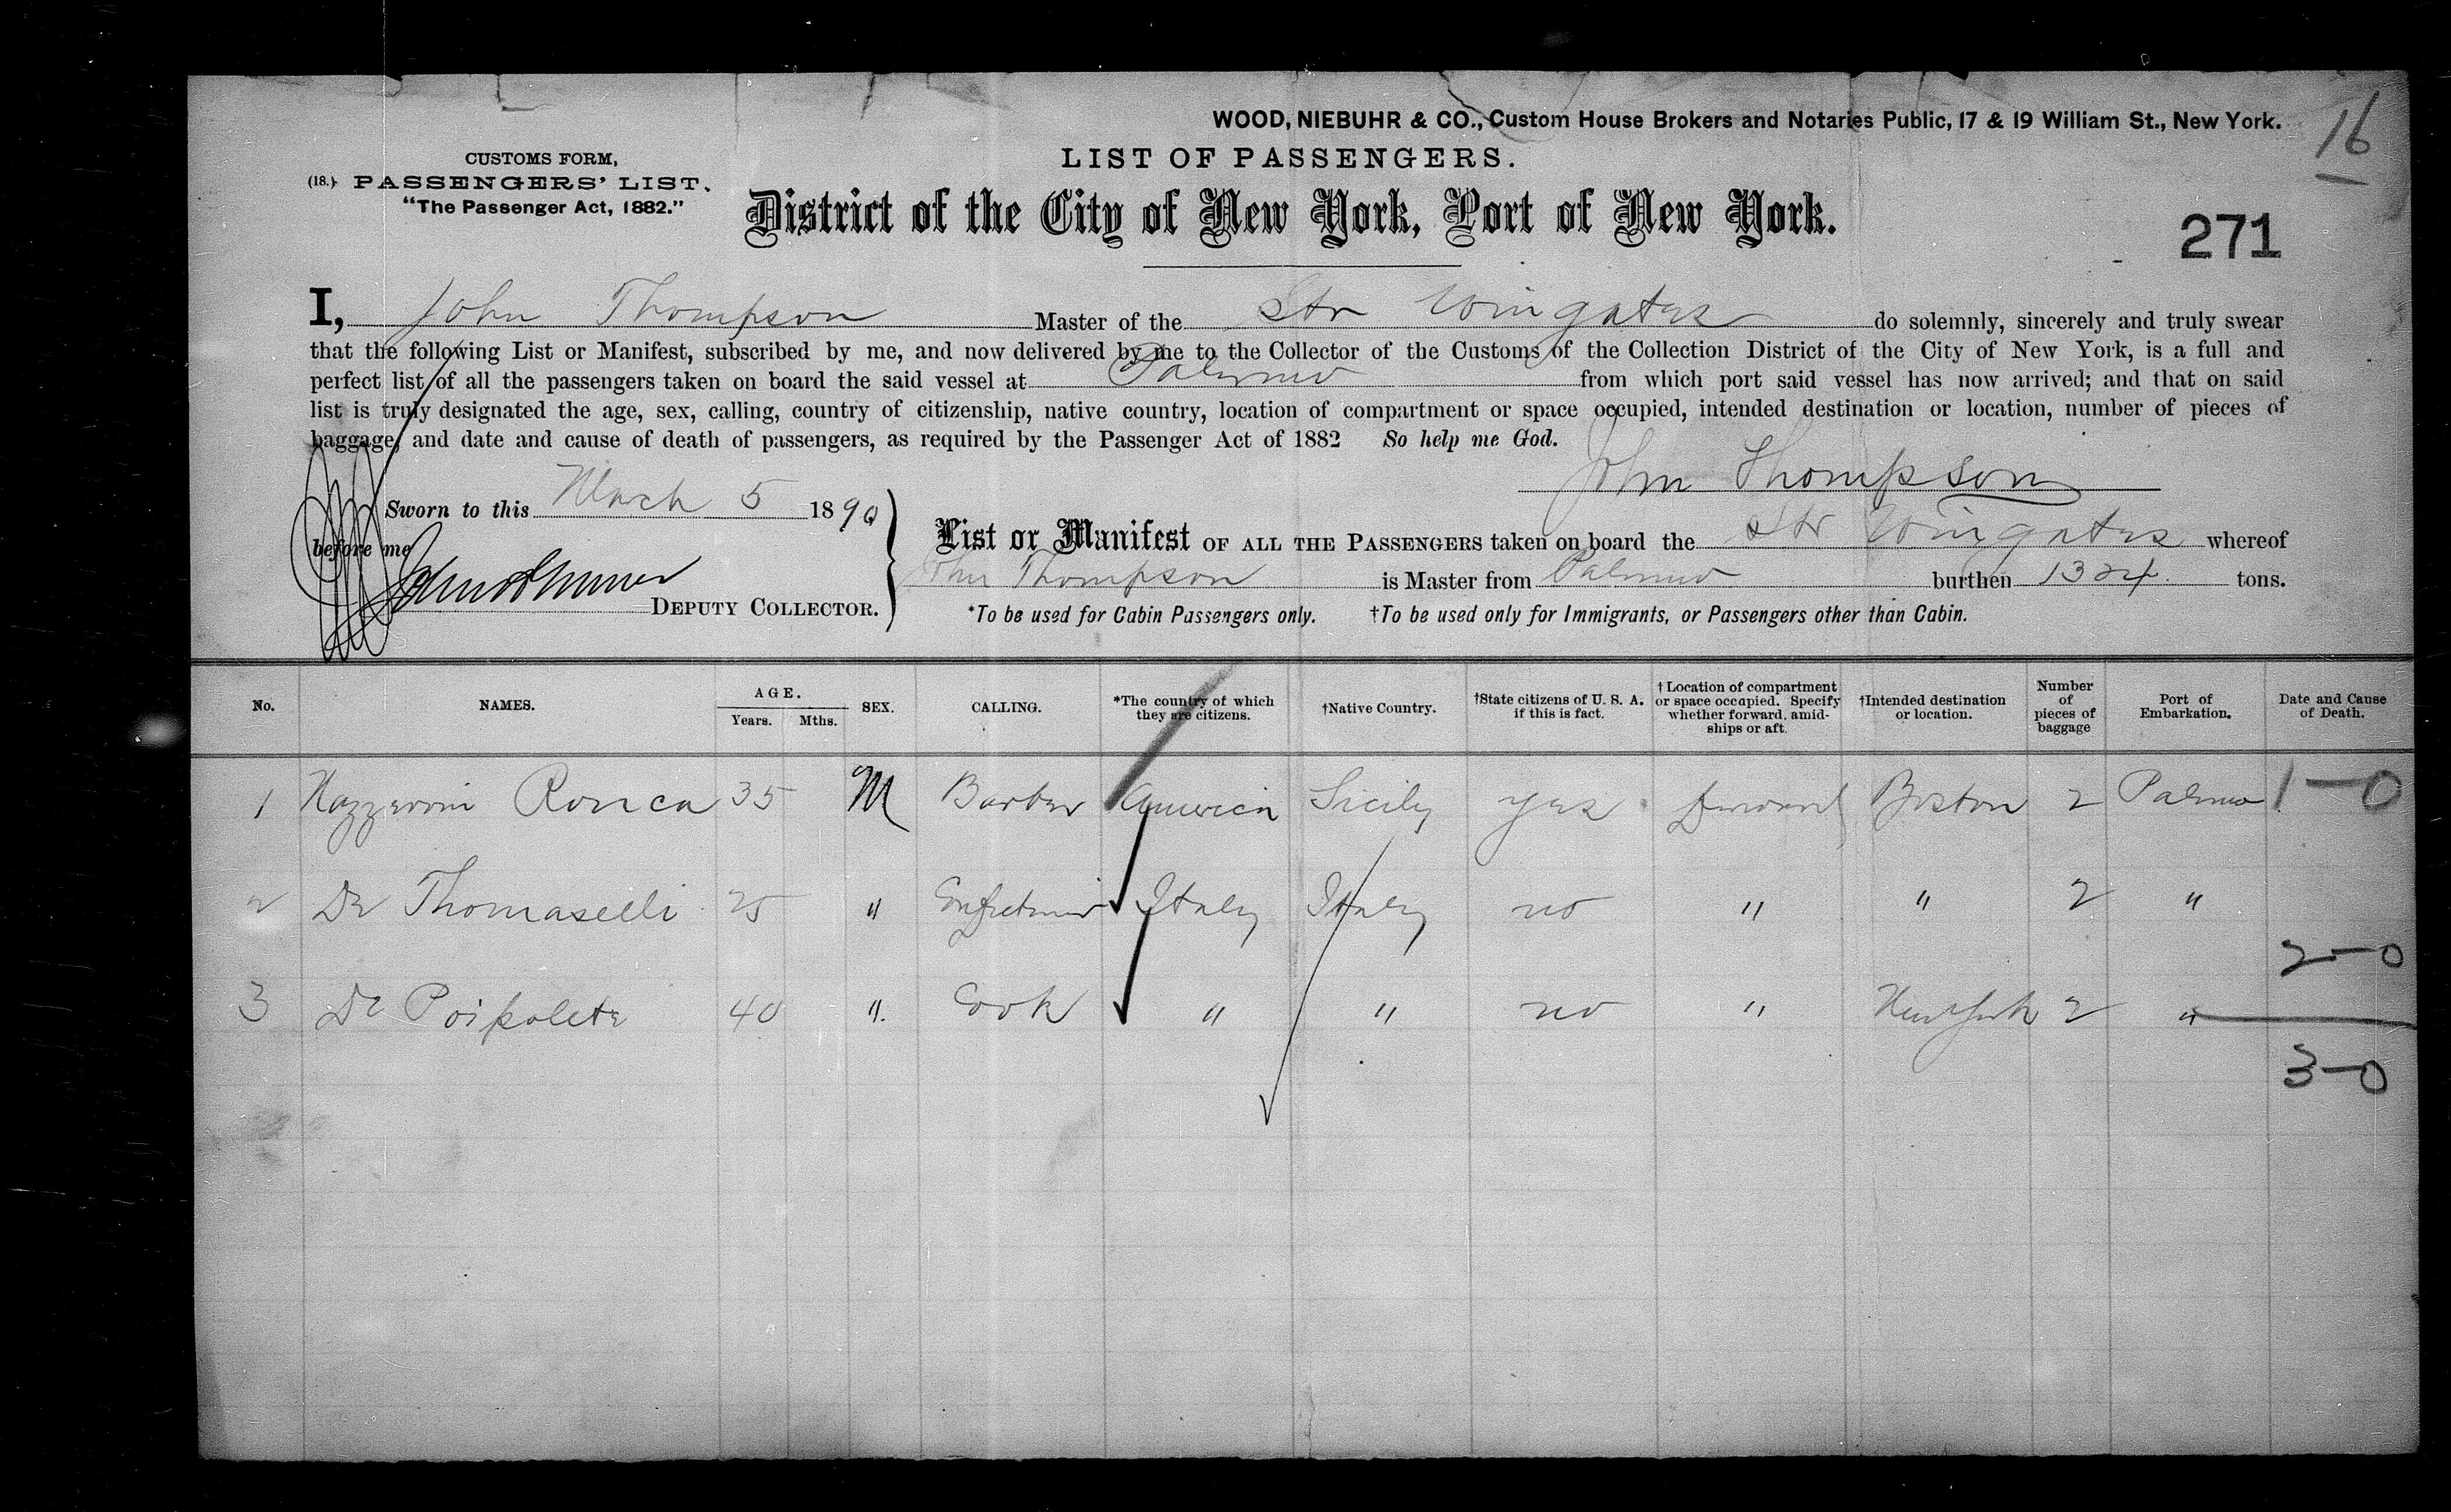 WOOD, NIEBUHR & CO., Custom House Brokers and Notaries Public, 17 & 19 William St., New York.
16
CUSTOMS FORM,
LIST OF PASSENGERS.
(18.) PASSENGERS' LIST.
"The Passenger Act, 1882."
District of the City of New York, Port of New York.
271
I, John Thompson Master of the Str Wingates do solemnly, sincerely and truly swear
that the following List or Manifest, subscribed by me, and now delivered by me to the Collector of the Customs of the Collection District of the City of New York, is a full and
perfect list of all the passengers taken on board the said vessel at Palermo from which port said vessel has now arrived; and that on said
list is truly designated the age, sex, calling, country of citizenship, native country, location of compartment or space occupied, intended destination or location, number of pieces of
baggage, and date and cause of death of passengers, as required by the Passenger Act of 1882 So help me God.
John Thompson
Sworn to this March 5 1890
before me
DEPUTY COLLECTOR.
List or Manifest OF ALL THE PASSENGERS taken on board the Str Wingates whereof
John Thompson is Master from Palermo burthen 1324 tons.
*To be used for Cabin Passengers only. †To be used only for Immigrants, or Passengers other than Cabin.
No. NAMES. AGE. Years. Mths. SEX. CALLING. *The country of which they are citizens. †Native Country. †State citizens of U. S. A. if this is fact. †Location of compartment or space occupied. Specify whether forward, amidships or aft. †Intended destination or location. Number of pieces of baggage Port of Embarkation. Date and Cause of Death.
1 Nazzeroni Ronca 35 M Barber America Sicily yes forward Boston 2 Palermo 1-0
2 De Thomaselli 25 " Italy Italy no " " 2 "
2-0
3 De 40 ". Cook " " no " New York 2 "
3-0